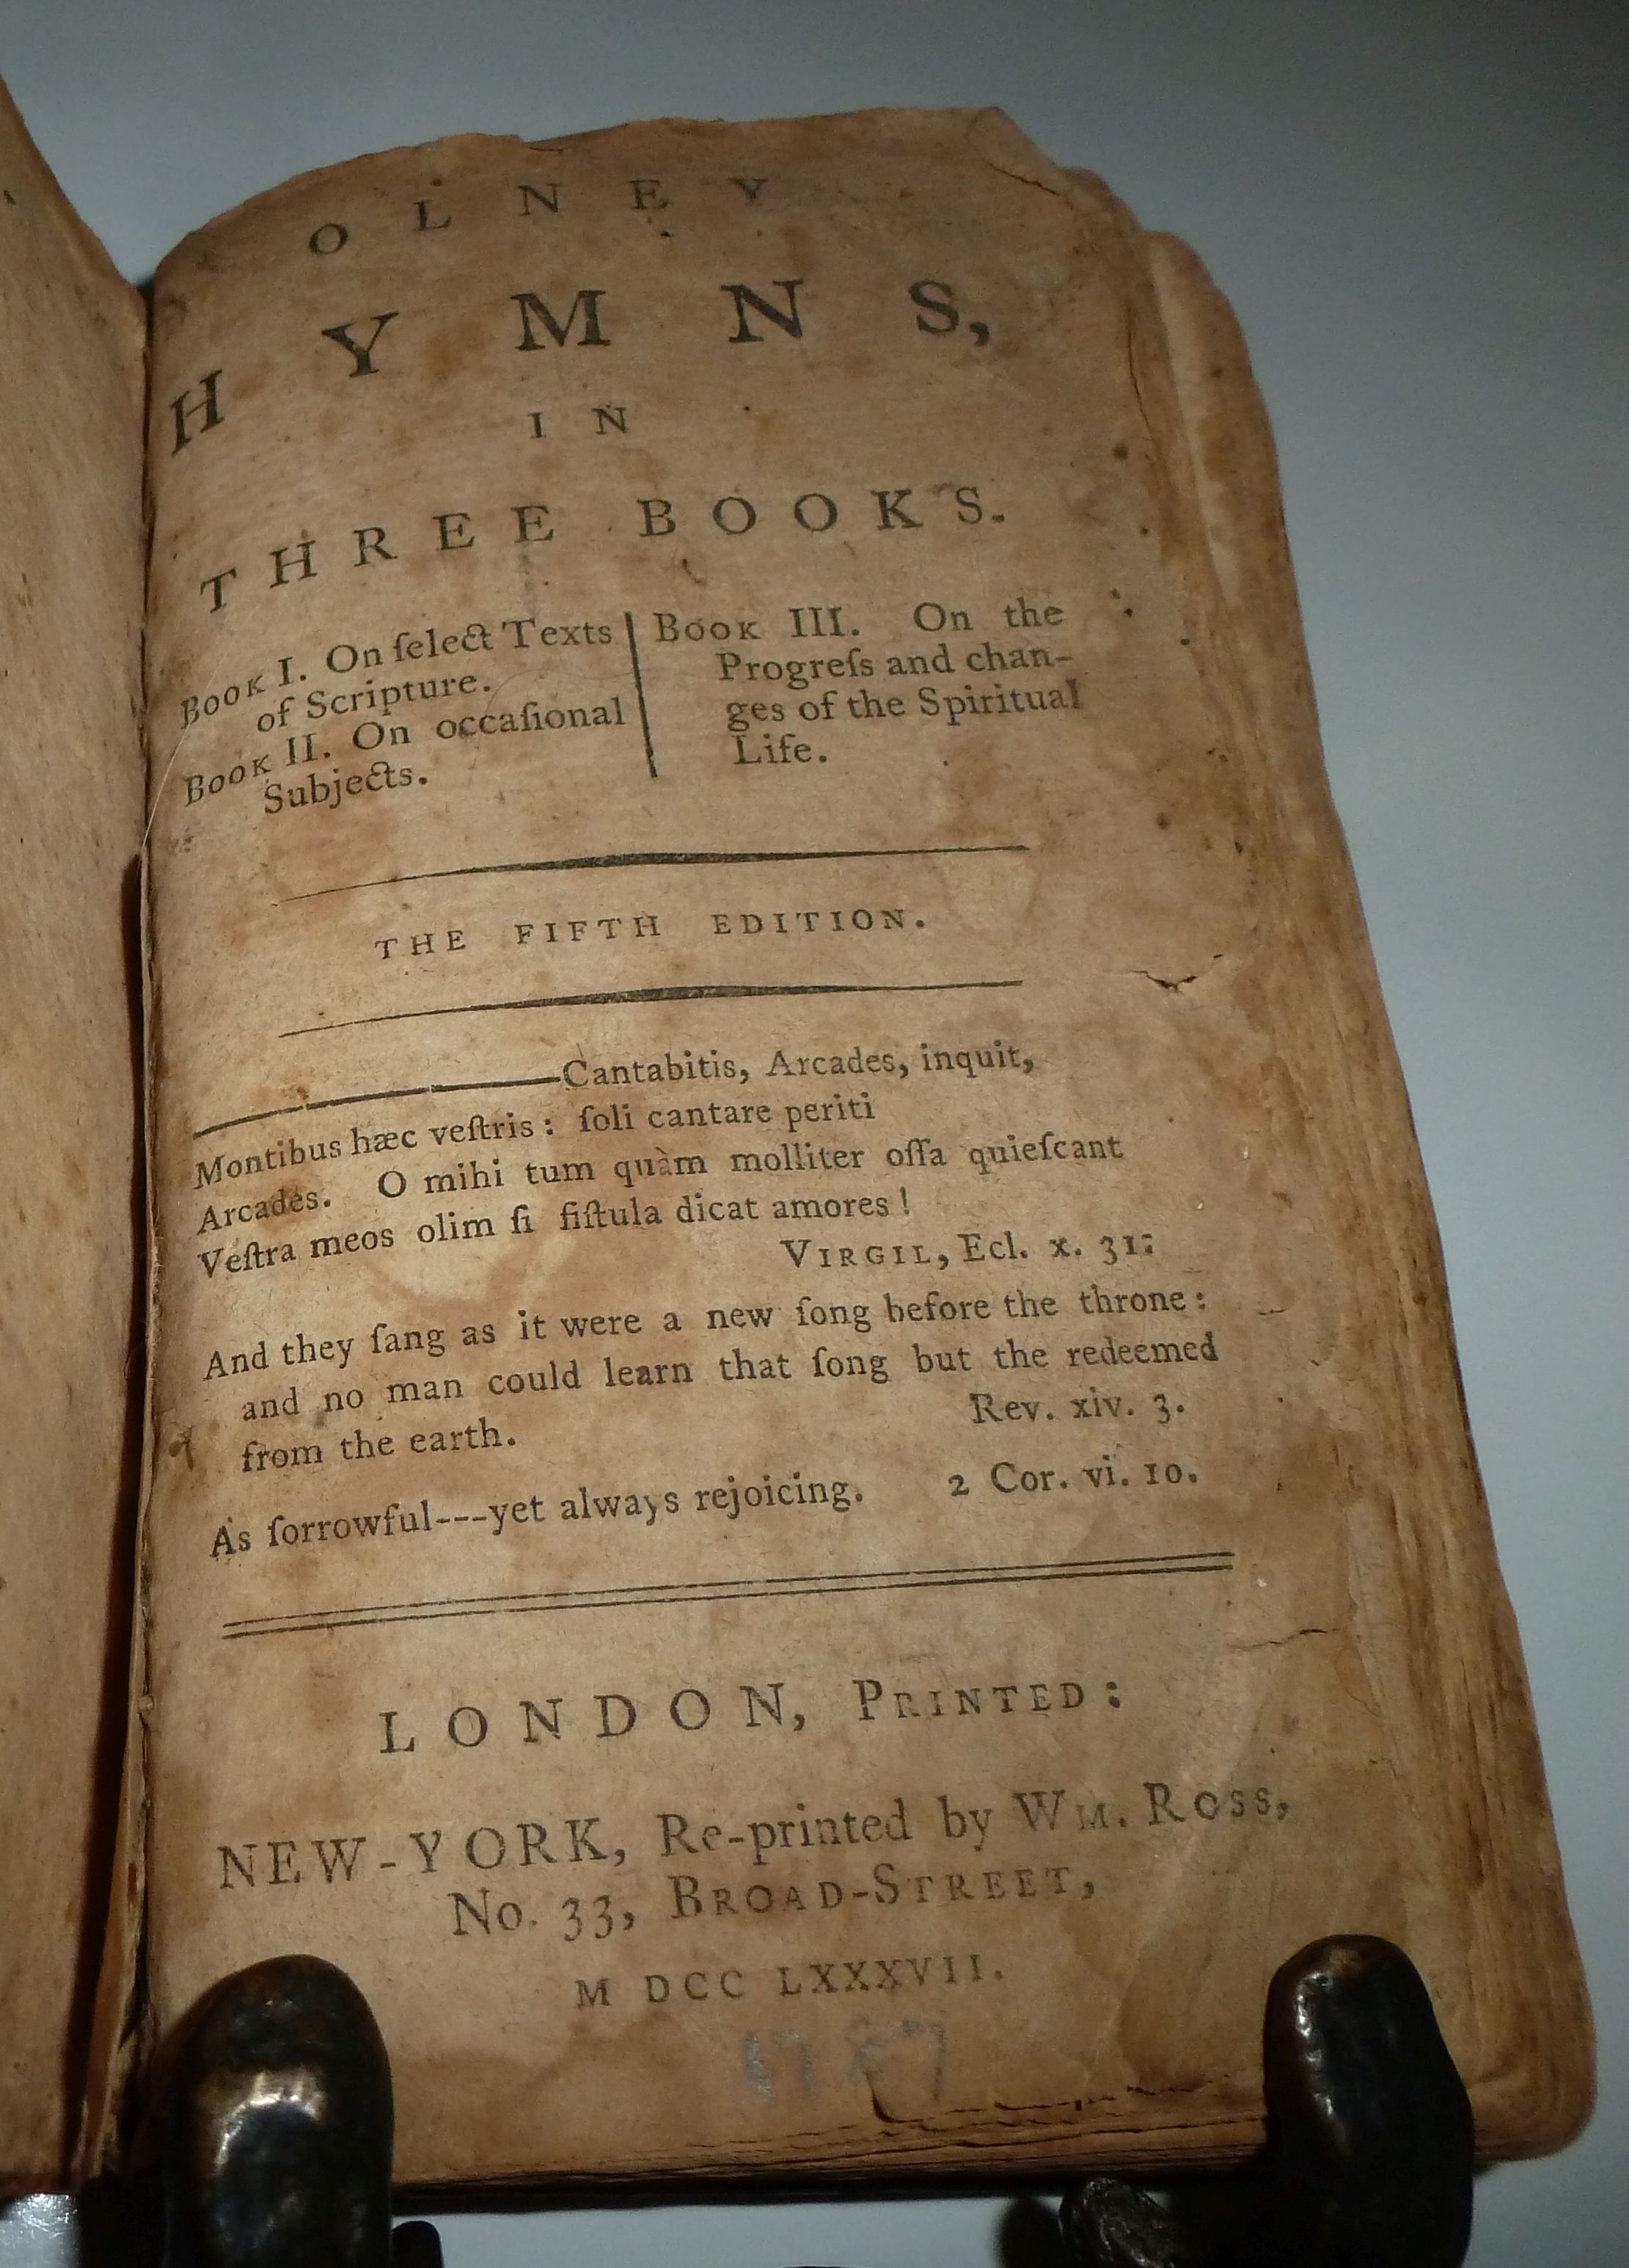 OLNEY
HYMNS,
IN
THREE BOOKS.
Book I. On ſelect Texts
of Scripture.
Book II. On occaſional
Subjects.
Book III. On the
Progreſs and chan-
ges of the Spiritual
Life.
THE FIFTH EDITION.
———Cantabitis, Arcades, inquit,
Montibus hæc veſtris: ſoli cantare periti
Arcades. O mihi tum quàm molliter oſſa quieſcant
Veſtra meos olim ſi fiſtula dicat amores!
VIRGIL, Ecl. x. 31:
And they ſang as it were a new ſong before the throne:
and no man could learn that ſong but the redeemed
from the earth.
Rev. xiv. 3.
As ſorrowful---yet always rejoicing. 2 Cor. vi. 10.
LONDON, PRINTED:
NEW-YORK, Re-printed by WM. ROSS,
No. 33, BROAD-STREET,
M DCC LXXXVII.